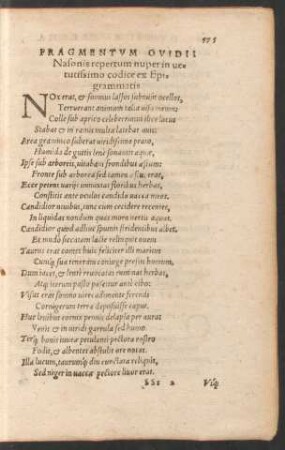 575
FRAGMENTVM OVIDII
Nasonis repertum nuper in ue-
tutissimo codice ex Epi-
grammatis
NOx erat, & somnus lassos submisit ocellos,
Terruerunt animum talia uisa meum:
Colle sub aprico celeberrimus ilice lucus
Stabat & in ramis multa latebat auis:
Area gramineo suberat uiridissima prato,
Humida de guttis lene sonantis aquæ,
Ipse sub arboreis, uitabam frondibus æstum:
Fronte sub arborea sed tamen æstus erat,
Ecce petens uarijs immistas floribus herbas,
Constitit ante oculos candida uacca meos,
Candidior niuibus, tunc cum cecidere recentes,
In liquidas nondum quas mora uertit aquas.
Candidior quod adhuc spumis stridentibus albet.
Et modo siccatam lacte relinquit ouem
Taurus erat comes huic feliciter ille maritus
Cumq; sua teneram coniuge pressit humum,
Dum iacet, & lente reuocatas ruminat herbas,
Atq; iterum pasto pascitur ante cibo:
Visus erat somno uires adimente ferendi
Cornigerum terra deposuisse caput.
Huc leuibus cornix pennis delapsa per auras
Venit & in uiridi garrula sedit humo
Terq; bouis niueæ petulanti pectora rostro
Fodit, & albentes abstulit ore notas.
Illa locum, taurumq; diu cunctata reliquit,
Sed niger in uaccæ pectore liuor erat.
SSs Visq;